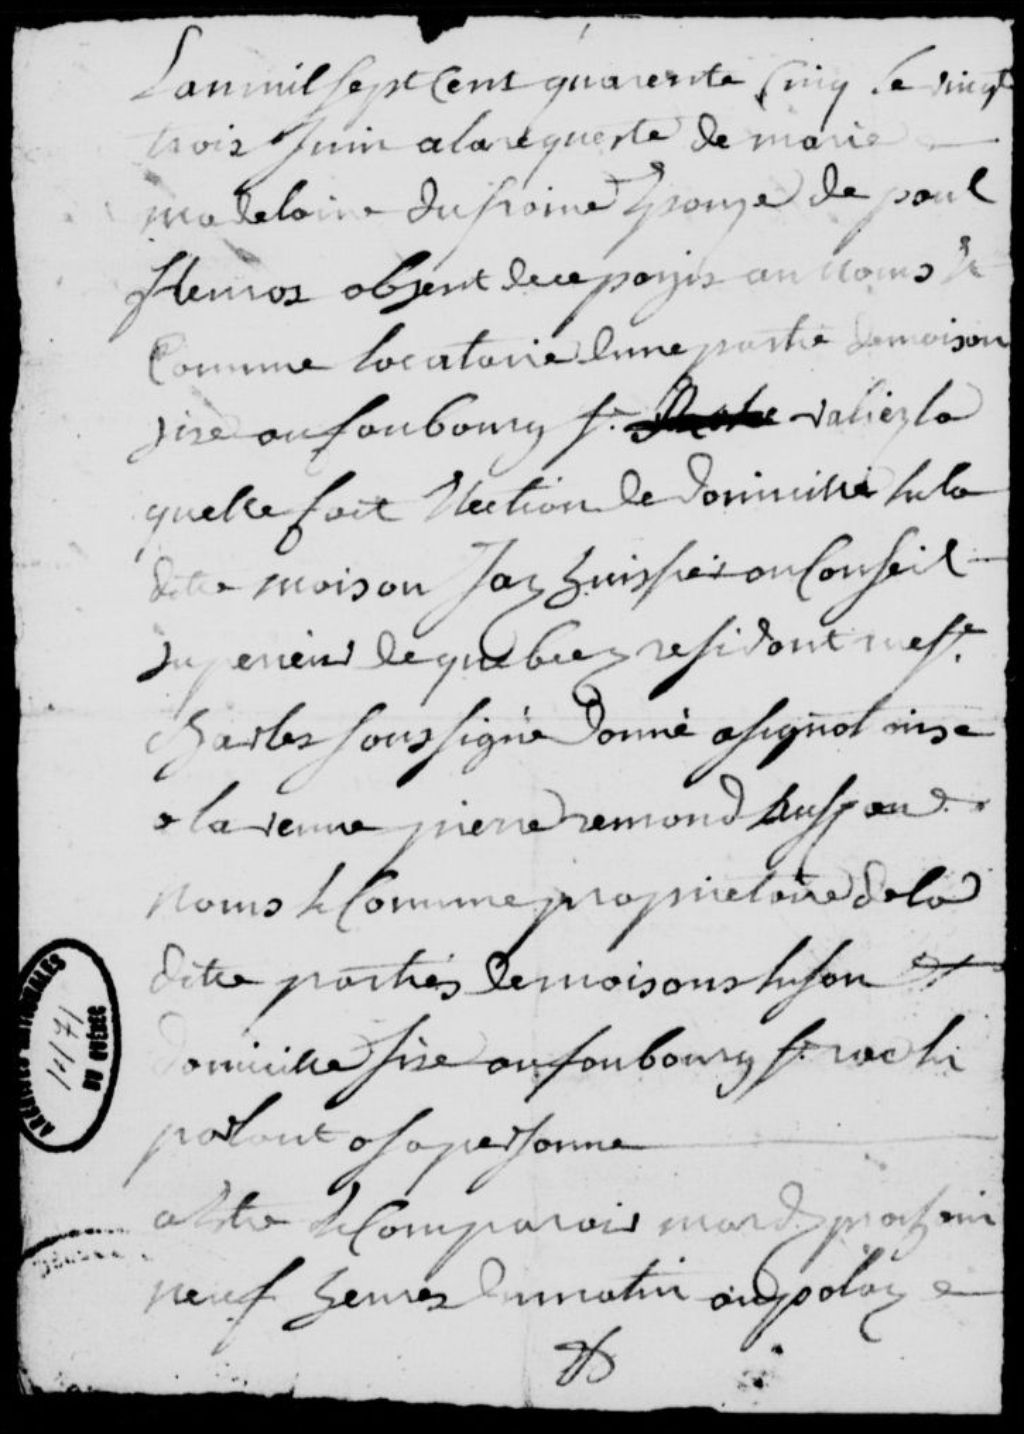 Lanmil sept Cent quarente Cinq le vingt
trois Juin alarequeste de marie
madelaine dufraine Epouze de paul
fleuros absent decepayis au noms &
Comme locatarie dune partie demaison
size aufaubourg st. valiez la
quelle fait Election de domicille en la
ditte maison Jay huissier au Conseil
superieur de quebecq residant rue st.
charles soussigné donné asignation
a la veuve pierre remond au
noms & Comme proprietaire de la
ditte parties de maisons en son
domicille size aufaubourg st. rochi
parlant a sa personne
a Estre & Comparoir mardy prochain
neuf heures du matin au palay e
ARCHIVES NATIONALES
DU QUÉBEC